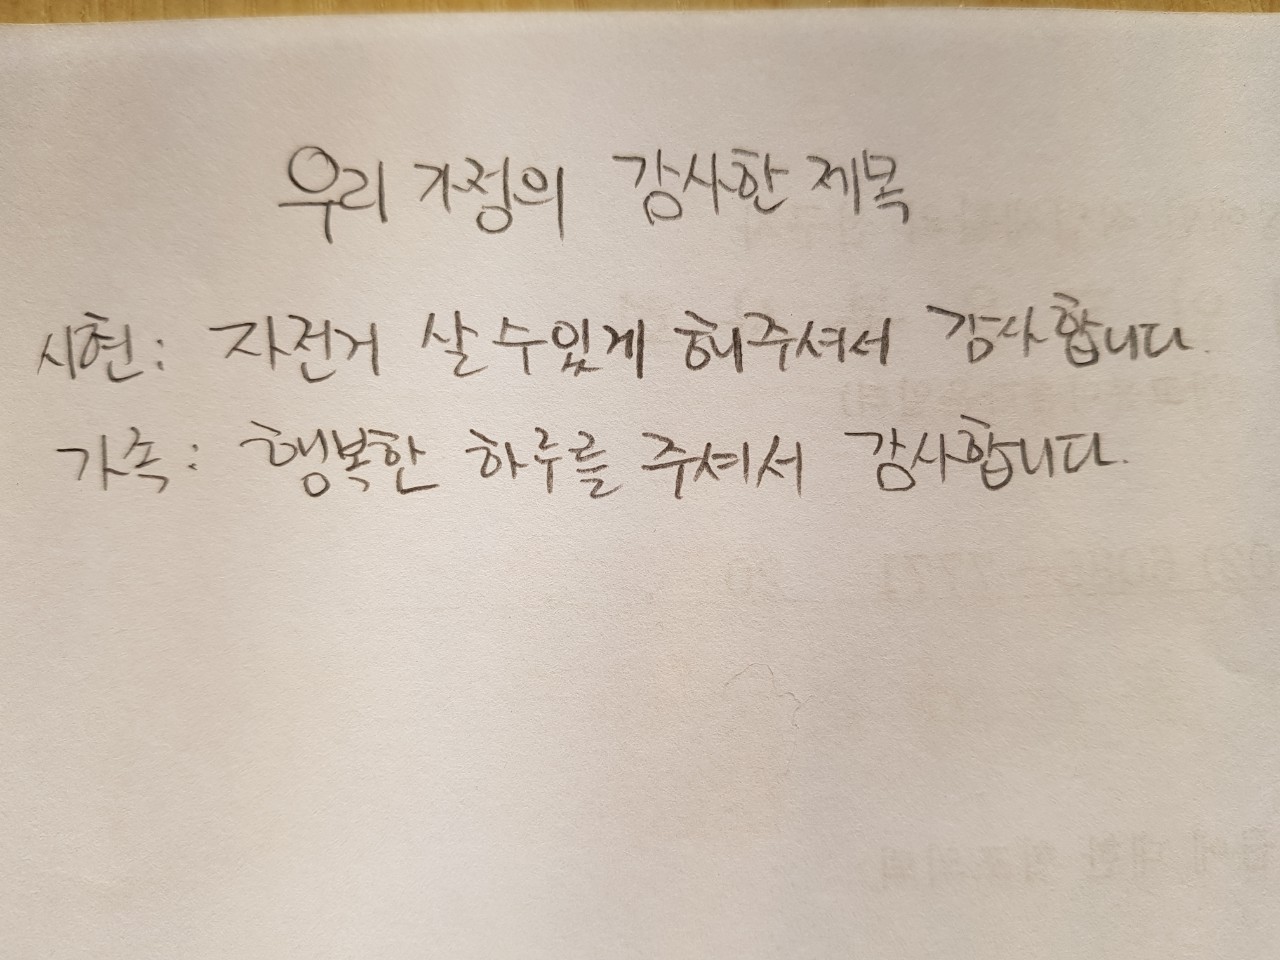 우리 가정의 감사한 제목
시현: 자전거 살 수있게 해주셔서 감사합니다.
가족: 행복한 하루를 주셔서 감사합니다.